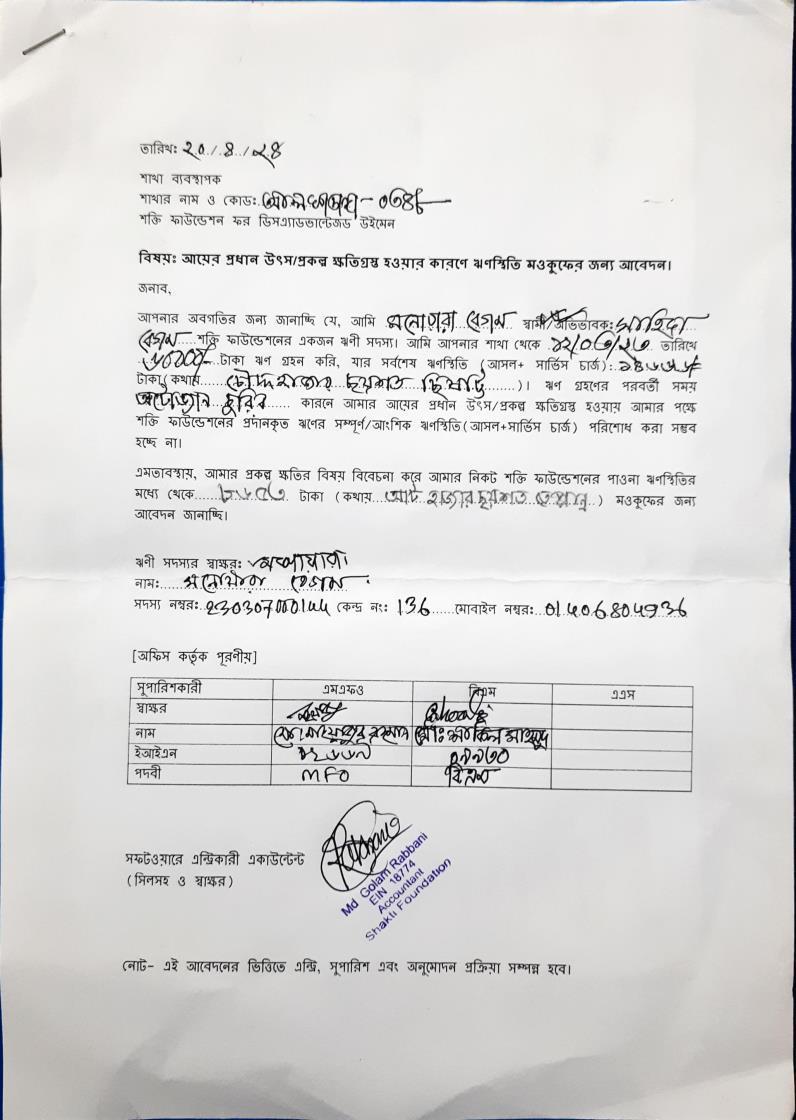 তারিখ: ২০/৪/২৪
শাখা ব্যবস্থাপক
শাখার নাম ও কোড: - ০৩৪৮
শক্তি ফাউন্ডেশন ফর ডিসএ্যাডভান্টেজড উইমেন
বিষয়: আয়ের প্রধান উৎস/প্রকল্প ক্ষতিগ্রস্ত হওয়ার কারণে ঋণস্থিতি মওকুফের জন্য আবেদন।
জনাব,
আপনার অবগতির জন্য জানাচ্ছি যে, আমি মনোয়ারা বেগম স্বামী/অভিভাবক: সাহিদা
বেগম শক্তি ফাউন্ডেশনের একজন ঋণী সদস্য। আমি আপনার শাখা থেকে ১২/০৩/২৩ তারিখে
টাকা ঋণ গ্রহন করি, যার সর্বশেষ ঋণস্থিতি (আসল+ সার্ভিস চার্জ):
টাকা(কথায় চৌদ্দ হাজার ছয়শত ছিষট্টি)। ঋণ গ্রহণের পরবর্তী সময়
অটোভ্যান চুরির কারনে আমার আয়ের প্রধান উৎস/প্রকল্প ক্ষতিগ্রস্ত হওয়ায় আমার পক্ষে
শক্তি ফাউন্ডেশনের প্রদানকৃত ঋণের সম্পূর্ণ/আংশিক ঋণস্থিতি(আসল+সার্ভিস চার্জ) পরিশোধ করা সম্ভব
হচ্ছে না।
এমতাবস্থায়, আমার প্রকল্প ক্ষতির বিষয় বিবেচনা করে আমার নিকট শক্তি ফাউন্ডেশনের পাওনা ঋণস্থিতির
মধ্যে থেকে ৮৬৫৩ টাকা (কথায় আট হাজার ছয়শত তেপ্পান্ন) মওকুফের জন্য
আবেদন জানাচ্ছি।
ঋণী সদস্যর স্বাক্ষর:
নাম: মনোয়ারা বেগম
সদস্য নম্বর: কেন্দ্র নং: 136 মোবাইল নম্বর:
[অফিস কর্তৃক পূরণীয়]
সুপারিশকারী এমএফও বিএম এএস
স্বাক্ষর
নাম
ইআইএন
পদবী MFO বিএম
সফটওয়ারে এন্ট্রিকারী একাউন্টেন্ট
(সিলসহ ও স্বাক্ষর)
Md Golam Rabbani
EIN 18774
Accountant
Shakti Foundation
নোট- এই আবেদনের ভিত্তিতে এন্ট্রি, সুপারিশ এবং অনুমোদন প্রক্রিয়া সম্পন্ন হবে।